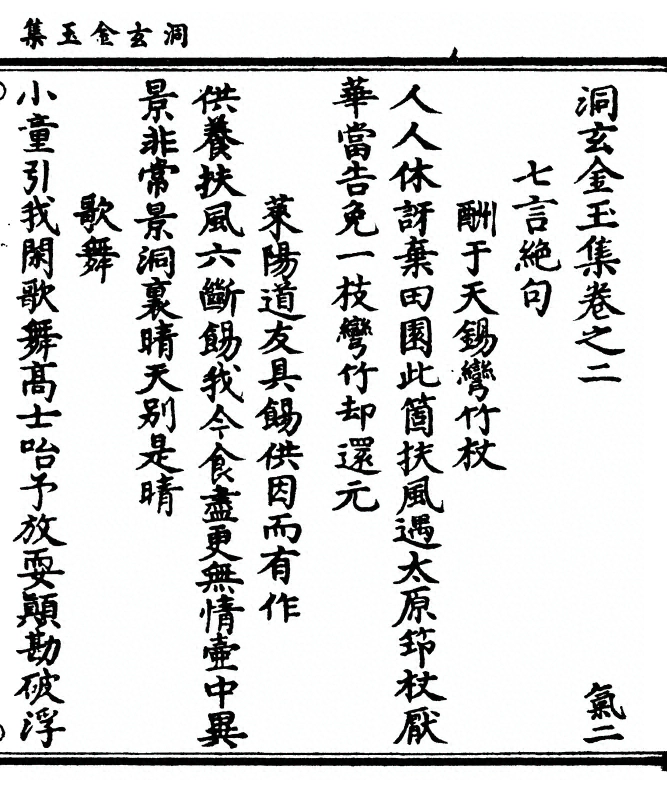 洞玄金玉集
洞玄金玉集卷之二 氣二
七言絶句
酬于天錫彎竹杖
人人休訝棄田園此箇扶風遇太原筇杖厭
華當告免一枝彎竹却還元
萊陽道友具餳供因而有作
供養扶風六斷餳我今食盡更無情壺中異
景非常景洞裏晴天别是晴
歌舞
小童引我閑歌舞高士咍予放耍顛勘破浮